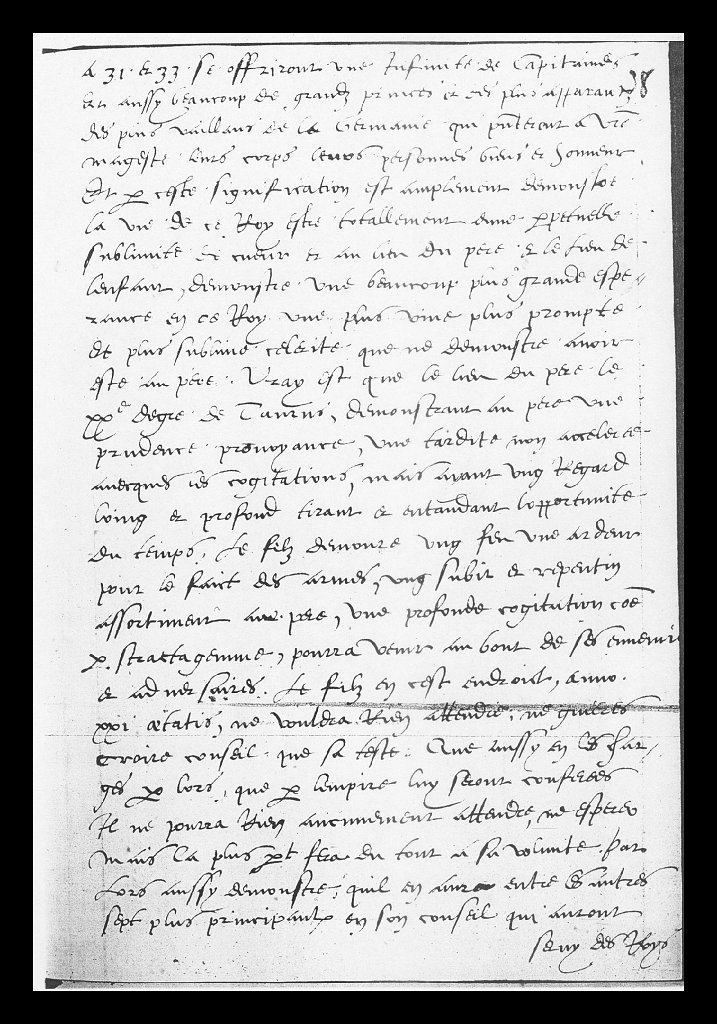 A 31 et 33 se offriront une Infinite de Capitaines
et aussy beaucoup de grandz princes et des plus apparantz
38
des plus vaillans de la Germanie qui pñteront a vre
mageste leurs corps leurs personnes biens et honneur
Et p ceste signification est amplement demonstre
la vie de ce Roy estre totallement dune ppetuelle
sublimite de cueur et au lieu du pere et le lieu de
lenfant, demonstre une beaucoup plus grande espe
rance en ce Roy une plus vive plus prompte
Et plus sublime celerite que ne demonstre avoir
este au pere. Vray est que le lieu du pere le
xxe degre de Taurus, demonstrant au pere une
prudence provoyance, une tardite non acceleree
avecques ses cogitations, mais ayant ung Regard
loing et profond tirant et entandant lopportunite
du temps. Le filz demonstre ung feu une ardeur
pour le faict des armes, ung subit et repentin
assortiment au pere, une profonde cogitation coe
p stractagemme, pourra venir au bout de ses ennemis
et adversaires. Le filz en cest endroict, anno.
xxi ætatis, ne vouldra Rien attendre, ne guieres
croire conseil que sa teste. Que aussy en les char,
ges p lors, que p lempire luy seront conferees
Il ne pourra Rien aucunement attendre, ne esperer
mais la plus pt fera du tout a sa volunte. Par
Lors aussy demonstre, quil en aura entre les autres
sept plus principaulx en son conseil qui auront
servy des Roys